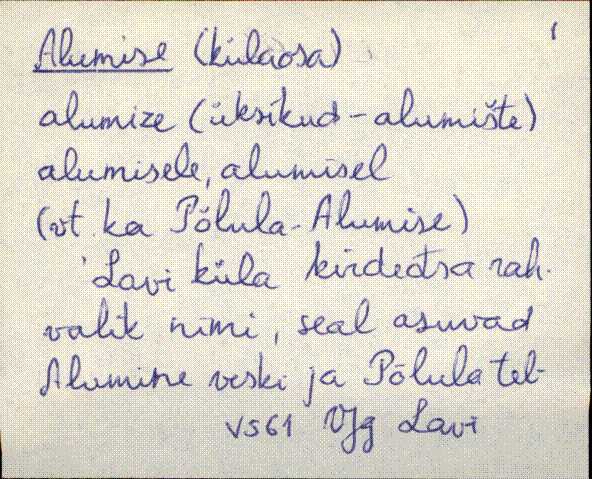 1
Alumise (külaosa)
alumize (üksikud - alumište)
alumisele, alumisel
(vt. ka Põlula-Alumise)
Lavi küla kirdeotsa rah-
valik nimi, seal asuvad
Alumine veski ja Põlula tel-
VJg Lavi